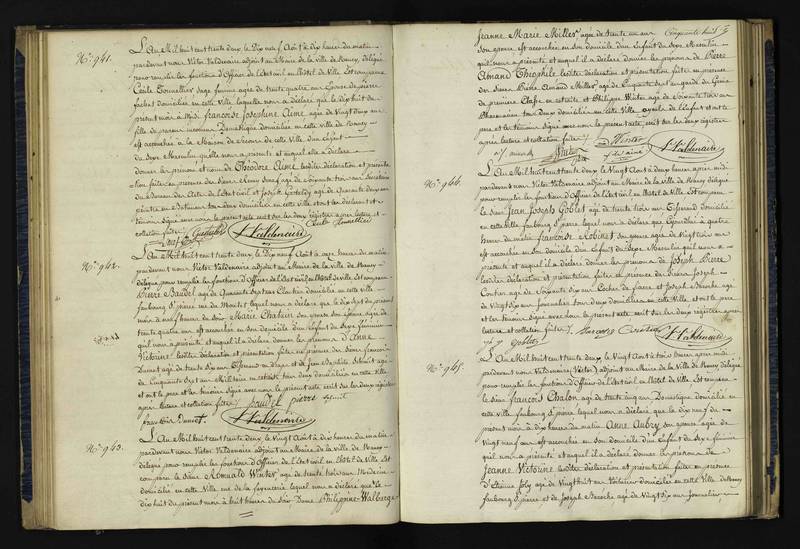 N.° 941.
L'An Mil huit cent trente deux, le Dix neuf Août à Dix heures du matin
pardevant nous Victor Valdenaire adjoint au Maire de la Ville de Nancy, délégué
pour remplir les fonctions d'Officier de l'Etat civil en l'Hôtel de Ville Est comparue
Cécile Tonnellier Sage femme agée de trente quatre ans Epouse de pierre
domiciliée en cette Ville laquelle nous a déclaré que le dix huit du
présent mois à Midi françoise Joséphine Aimé agée de Vingt deux ans
fille de parents inconnus Domestique domiciliée en cette ville de Nancy
est accouchée à la Maison de Secours de cette Ville d'un Enfant
du Sexe Masculin qu'elle nous a présenté et auquel elle a déclaré
donner les prénom et nom de Théodore Aimé Lesdites déclaration et présentation
faites en présence des Sieurs Remy agé de Soixante trois ans Secrétaire
du Bureau des Actes de l'Etat civil et Joseph agé de Quarante deux ans
peintre en Bâtiment tous deux domiciliés en cette ville et ont les déclarant et
témoins Signé avec nous le présent acte écrit sur les deux registres après lecture et
collation faites
V. Valdenaire
Cécile Tonnellier
N.° 942.
L'An Mil huit cent trente deux, le Dix neuf Août à onze heures du matin
pardevant nous Victor Valdenaire adjoint au Maire de la Ville de Nancy
délégué pour remplir les fonctions d'Officier de l'Etat civil en l'Hôtel de Ville Est comparu
Pierre Baudel agé de Quarante Sept ans domicilié en cette ville
faubourg S.t pierre lequel nous a déclaré que le dix Sept du présent
mois à neuf heures du Soir Marie Chatain son épouse agée de
trente quatre ans est accouchée en son domicile d'un Enfant du Sexe féminin
qu'il nous a présenté et auquel il a déclaré donner les prénoms d'Anne
Victoire lesdites déclaration et présentation faites en présence des Sieurs françois
agé de trente six ans Tisserand et Jean Baptiste Schmit agé
de Cinquante Sept ans Militaire en retraite tous deux domiciliés en cette Ville
et ont le père et les témoins Signé avec nous le présent acte écrit sur les deux registres
après lecture et collation faites
Baudel pierre Schmit
V. Valdenaire
N.° 943.
L'An Mil huit cent trente deux, le Vingt Août à dix heures du matin
pardevant nous Victor Valdenaire adjoint au Maire de la Ville de Nancy
délégué pour remplir les fonctions d'Officier de l'Etat civil en l'Hôtel de Ville Est
comparu le Sieur Romuald Winter agé de trente trois ans
domicilié en cette Ville rue de la fayencerie lequel nous a déclaré que le
dix huit du présent mois à huit heures du Soir Dame Philippine Walburge
Cinquante huit
Jeanne Marie Miller agée de trente un ans
Son épouse est accouchée en son domicile d'un Enfant du Sexe Masculin
qu'il nous a présenté et auquel il a déclaré donner les prénoms de Pierre
Amand Théophile lesdites déclaration et présentation faites en présence
des Sieurs Pierre Amand Miller agé de Cinquante Sept ans garde du Génie
de première Classe en retraite et Philippe Winter agé de Soixante trois ans
tous deux domiciliés en cette Ville ayeuls de l'enfant et ont le
père et les témoins Signé avec nous le présent acte, écrit sur les deux registres
après lecture et collation faites
Winter
V. Valdenaire
N.° 944.
L'An Mil huit cent trente deux, le Vingt Août à deux heures après midi
pardevant nous Victor Valdenaire adjoint au Maire de la Ville de Nancy délégué
pour remplir les fonctions d'Officier de l'Etat civil en l'Hôtel de Ville Est comparu
le Sieur Jean Joseph Goblet agé de trente trois ans Tisserand domicilié
en cette Ville faubourg S.t pierre lequel nous a déclaré que à quatre
heures du matin françoise Robinet son épouse agée de Vingt trois ans
est accouchée en son domicile d'un Enfant du Sexe Masculin qu'il nous a
présenté et auquel il a déclaré donner les prénoms de Joseph Pierre
lesdites déclaration et présentation faites en présence des Sieurs Joseph
agé de Soixante dix ans Cocher de fiacre et Joseph Baroche agé
de Vingt Six ans Journalier tous deux domiciliés en cette Ville et ont le père
et les témoins Signé avec nous le présent acte écrit sur les deux registres après
lecture et collation faites
Goblet
V. Valdenaire
N.° 945.
L'An Mil huit cent trente deux, le Vingt Août à trois heures après midi
pardevant nous Valdenaire (Victor) adjoint au Maire de la Ville de Nancy délégué
pour remplir les fonctions d'Officier de l'Etat civil en l'Hôtel de Ville Est comparu
le Sieur françois Chalon agé de trente cinq ans Domestique domicilié en
cette Ville faubourg S.t pierre lequel nous a déclaré que le dix neuf du
présent mois à dix heures du matin Anne Aubry son épouse agée de
Vingt neuf ans est accouchée en son domicile d'un Enfant du Sexe féminin
qu'il nous a présenté et auquel il a déclaré donner les prénoms de
Jeanne Victoire lesdites déclaration et présentation faites en présence
d'Etienne Joly agé de Vingt huit ans domicilié en cette Ville de Nancy
faubourg S.t pierre et de Joseph Baroche agé de Vingt Six ans Journalier,